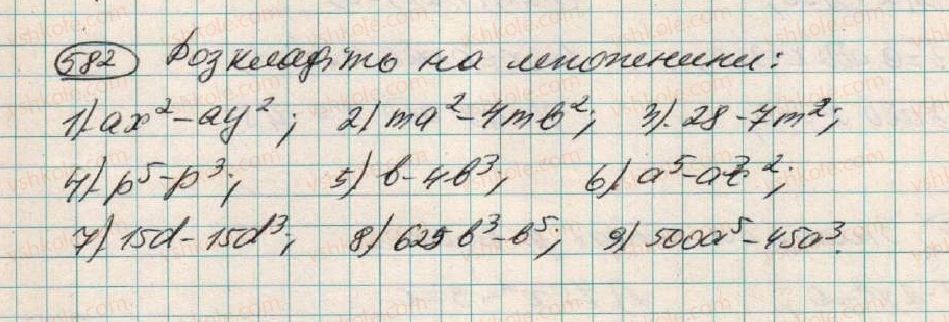 582 Розкладіть на множники:
1) ax² - ay²; 2) ma² - 4mb²; 3) 28 - 7m²;
4) p⁵ - p³; 5) b - 4b³; 6) a⁵ - a³c²;
7) 15d - 15d³; 8) 625b³ - b⁵; 9) 500a⁵ - 45a³.